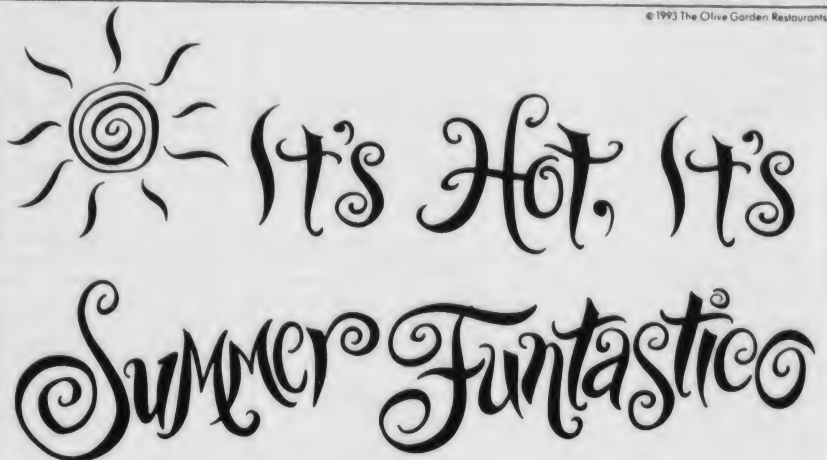 © 1993 The Olive Garden Restaurants
It's Hot, It's
Summer Funtastico